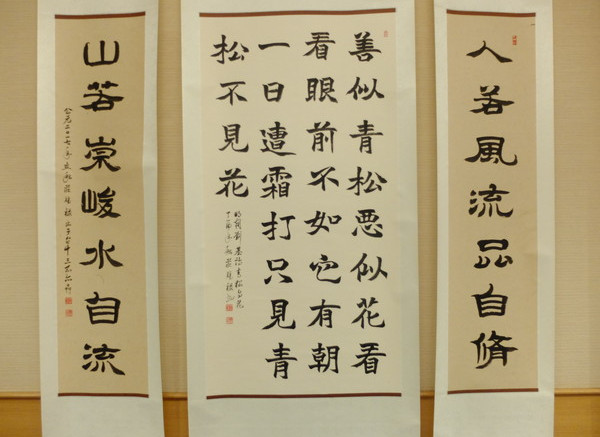 人若風流品自脩
善似青松惡似花看
看眼前不如它有朝
一日遭霜打只見青
松不見花
山若崇峻水自流